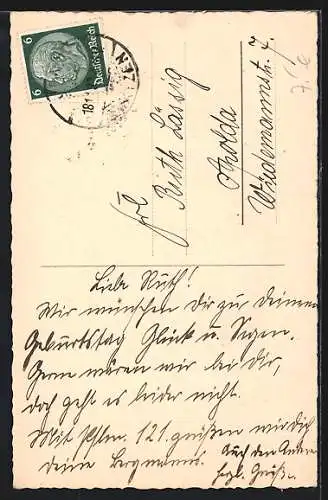 6 Deutsches Reich 6
Frl
Ruth Läsig
Apolda
Wiedemannstr. 7.
Liebe Ruth!
Wir wünschen Dir zu Deinem
Geburtstag Glück u. Segen.
Gerne wären wir bei dir,
doch geht es leider nicht.
Mit Pslm. 121. grüßen wir dich
deine Bergmanns.
Auch den Andern
hrzl. Grüße.